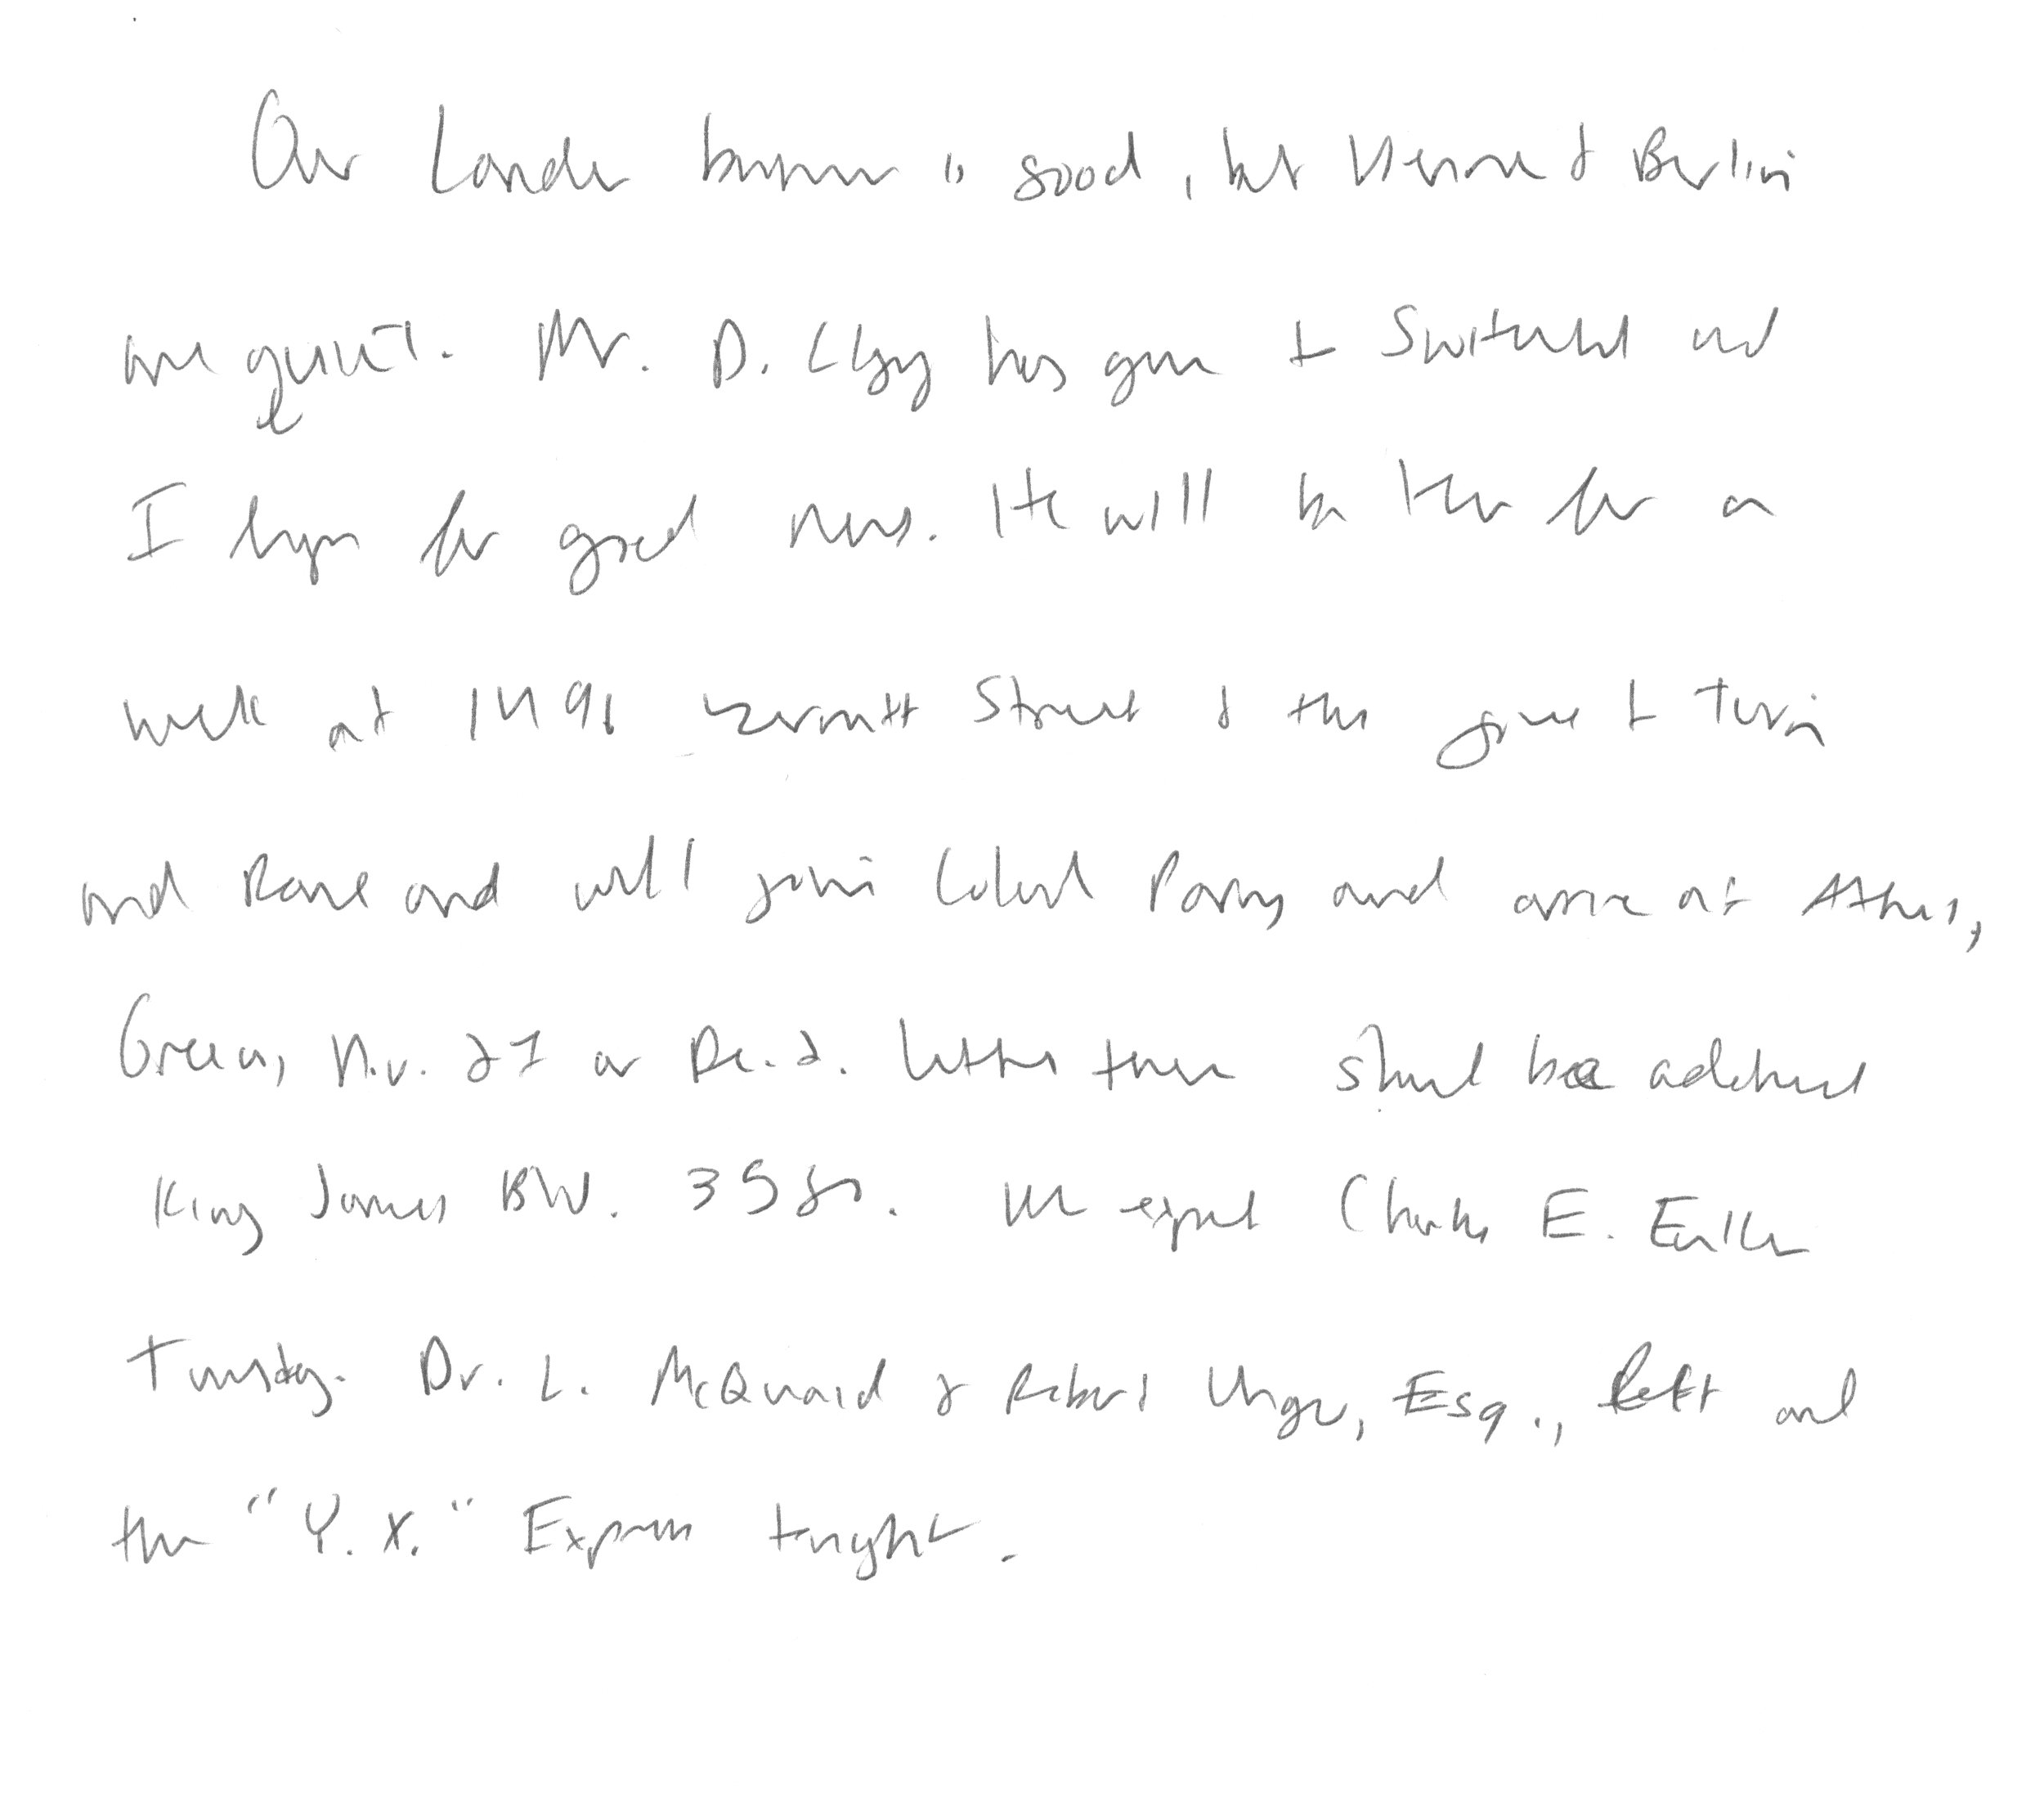 Our London business is good, but Vienna & Berlin
are quiet. Mr. D. Lloyd has gone to Switzerland and
I hope for good news. He will be there for a
week at 1496 Zermatt Street & then goes to Turin
and Rome and will join Colonel Parry and arrive at Athens,
Greece, Nov. 27 or Dec. 2. Letters there should be addressed
King James Blvd. 3580. We expect Charles E. Fuller
Tuesday. Dr. L. McQuaid & Robert Unger, Esq., left on
the "Y.X." Express tonight.